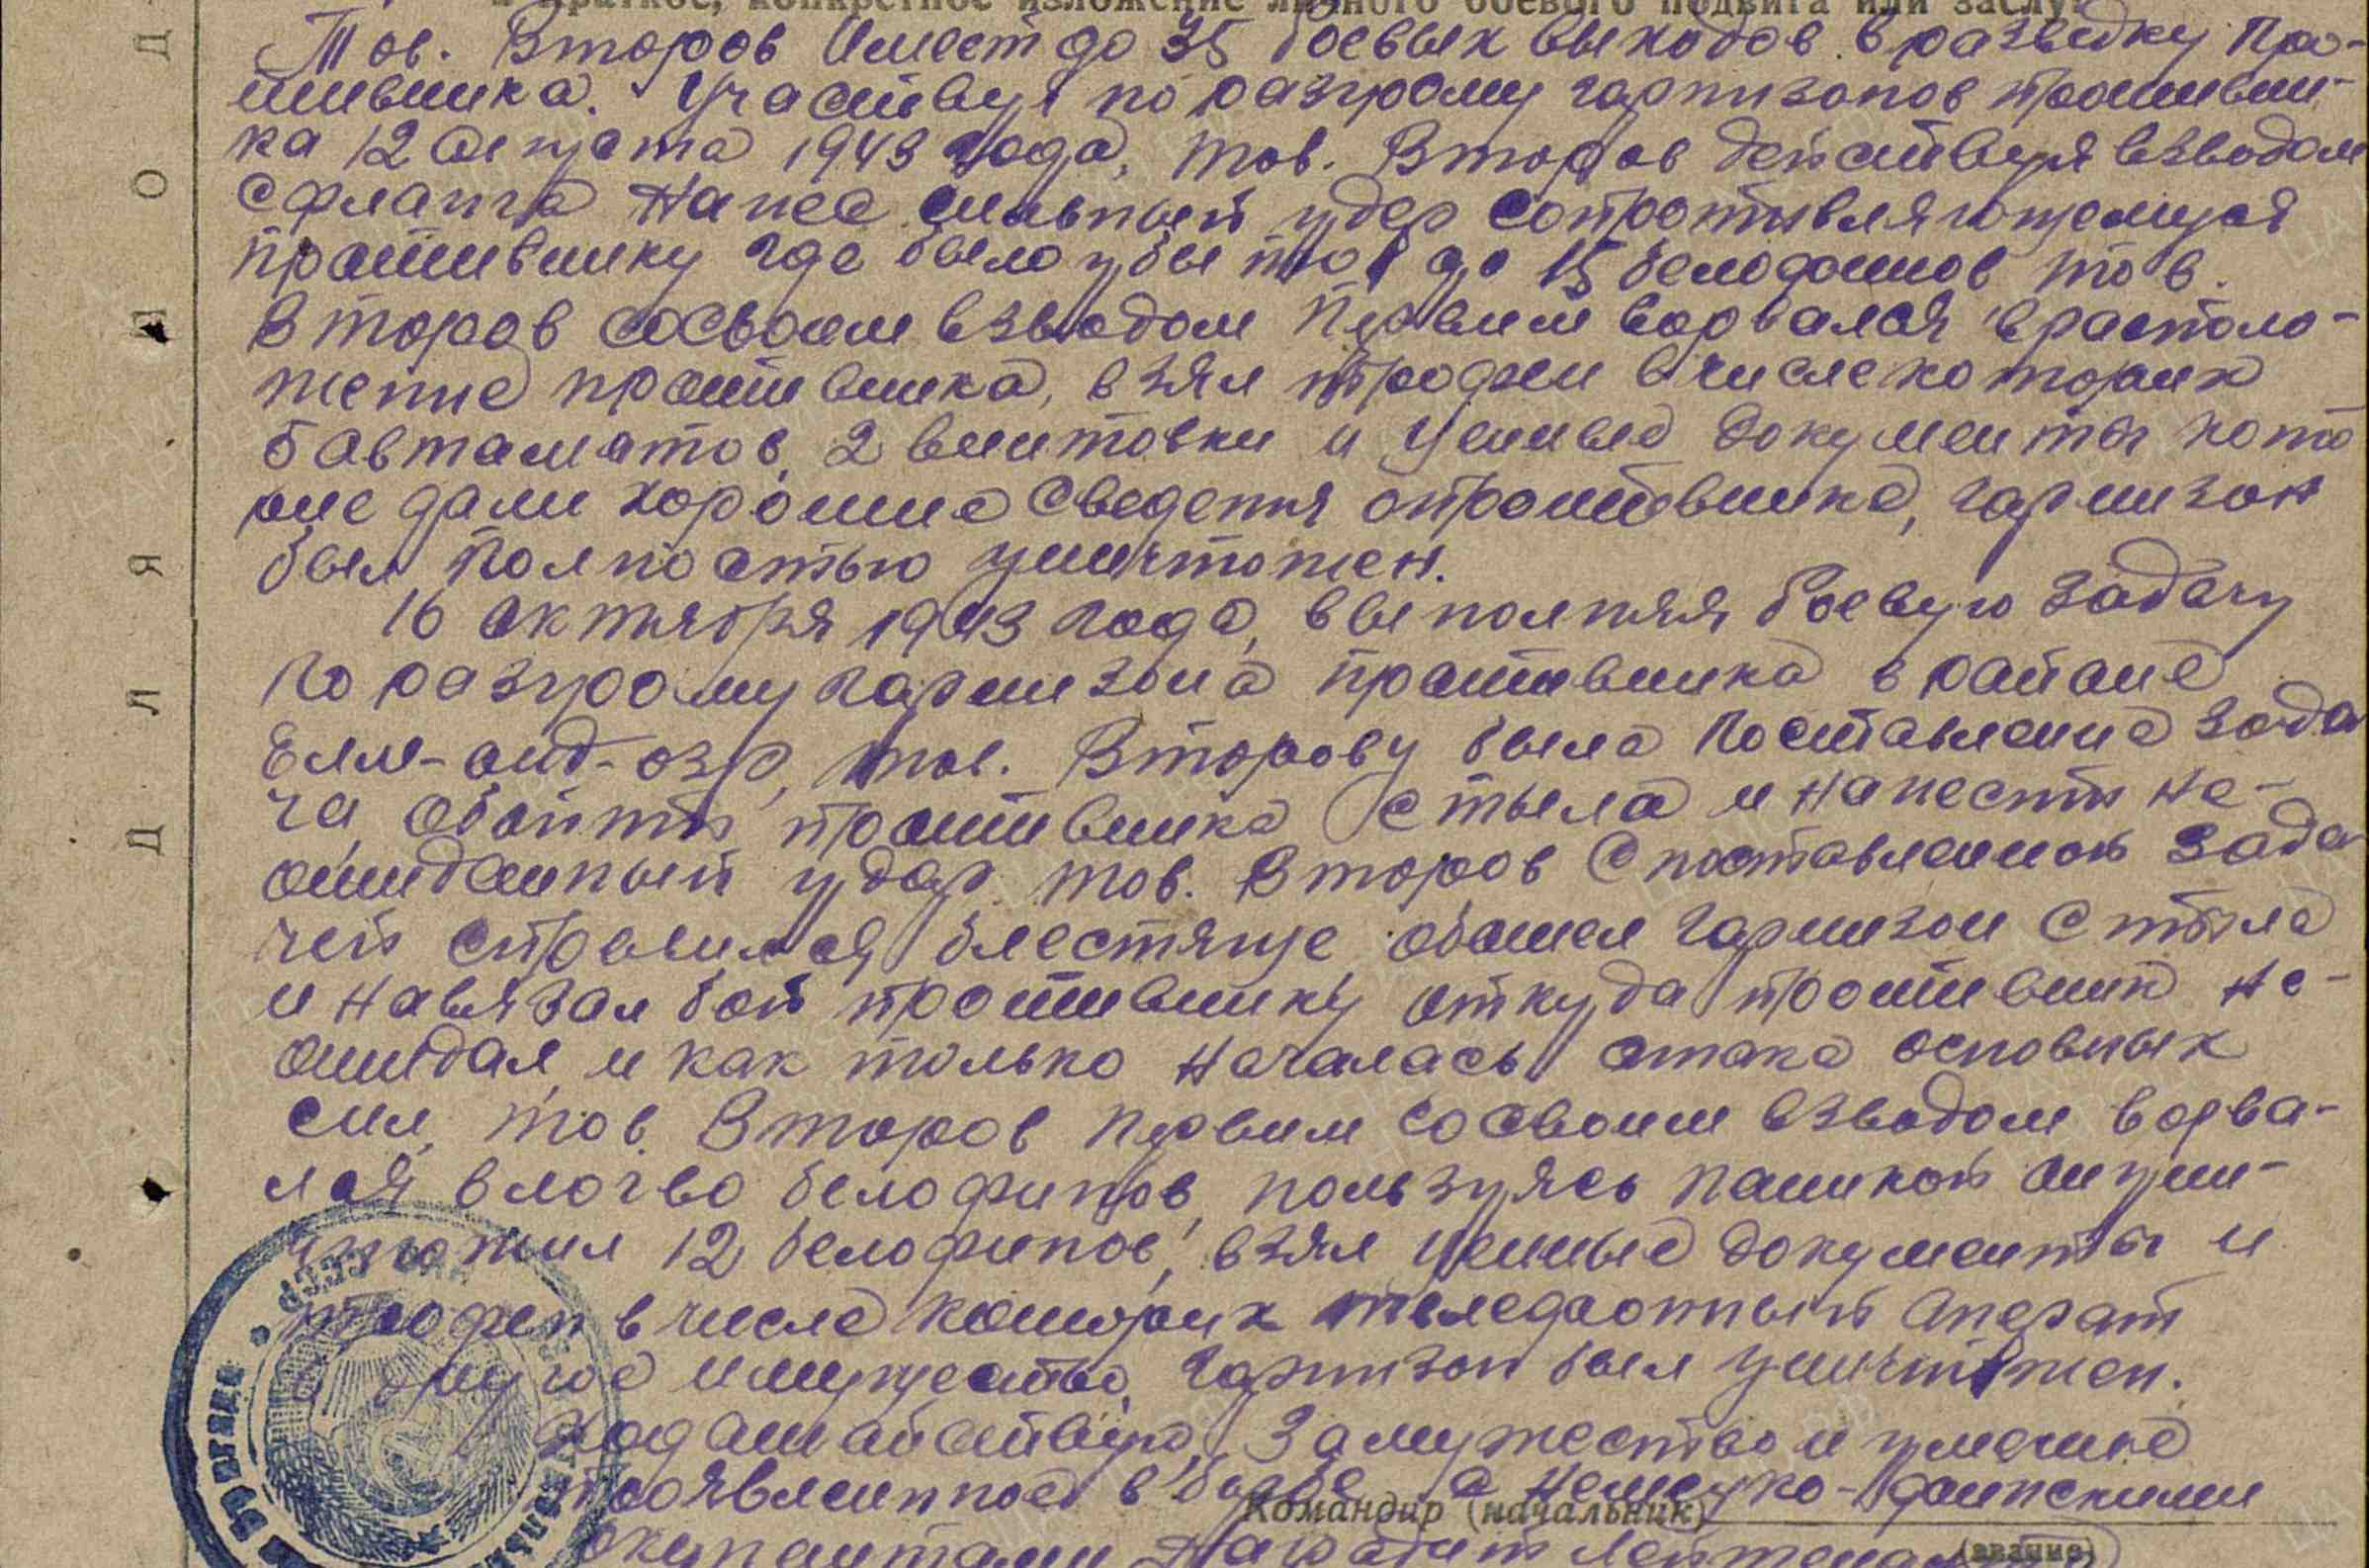 и краткое, конкретное изложение личного боевого подвига или заслу
Тов. Второв Имеет до 35 боевых выходов в разведку Про-
тивника. Участвуя по разгрому гарнизонов противни-
ка 12 августа 1943 года, тов. Второв действуя взводом
с фланга нанес сильный удар сопротивляющемуся
противнику где было убито до 15 белофинов тов.
Второв со своим взводом Первым ворвался в располо-
жение противника, взял трофеи в числе которых
5 автаматов, 2 винтовки и Ценные документы кото
рые дали хорошие сведения о противнике, гарнизон
был полностью уничтожен.
16 октября 1943 года, выполняя боевую задачу
по разгрому гарнизона противника в районе
Елм-анд-озр, тов. Второву была поставленна зада
ча, обойти противника с тыла и нанести не-
ожиданный удар. тов. Второв с поставленной зада
чей справился блестяще обошел гарнизон с тыла
и навязал бой противнику откуда противник не-
ожидал, и как только началась атака основных
сил, тов. Второв первым со своим взводом ворва-
лся в логво белофинов, пользуясь паникой он уни-
чтожил 12 белофинов, взял ценные документы и
трофеи в числе которых телефонный аперат
и другое имущество, гарнизон был уничтожен.
Ходатайствую За мужество и умение
проявленное в борьбе с немецко-финскими
Командир (начальник)
окупантами наградить лейтенанта
(звание)
Д Л Я П О Д
СССР